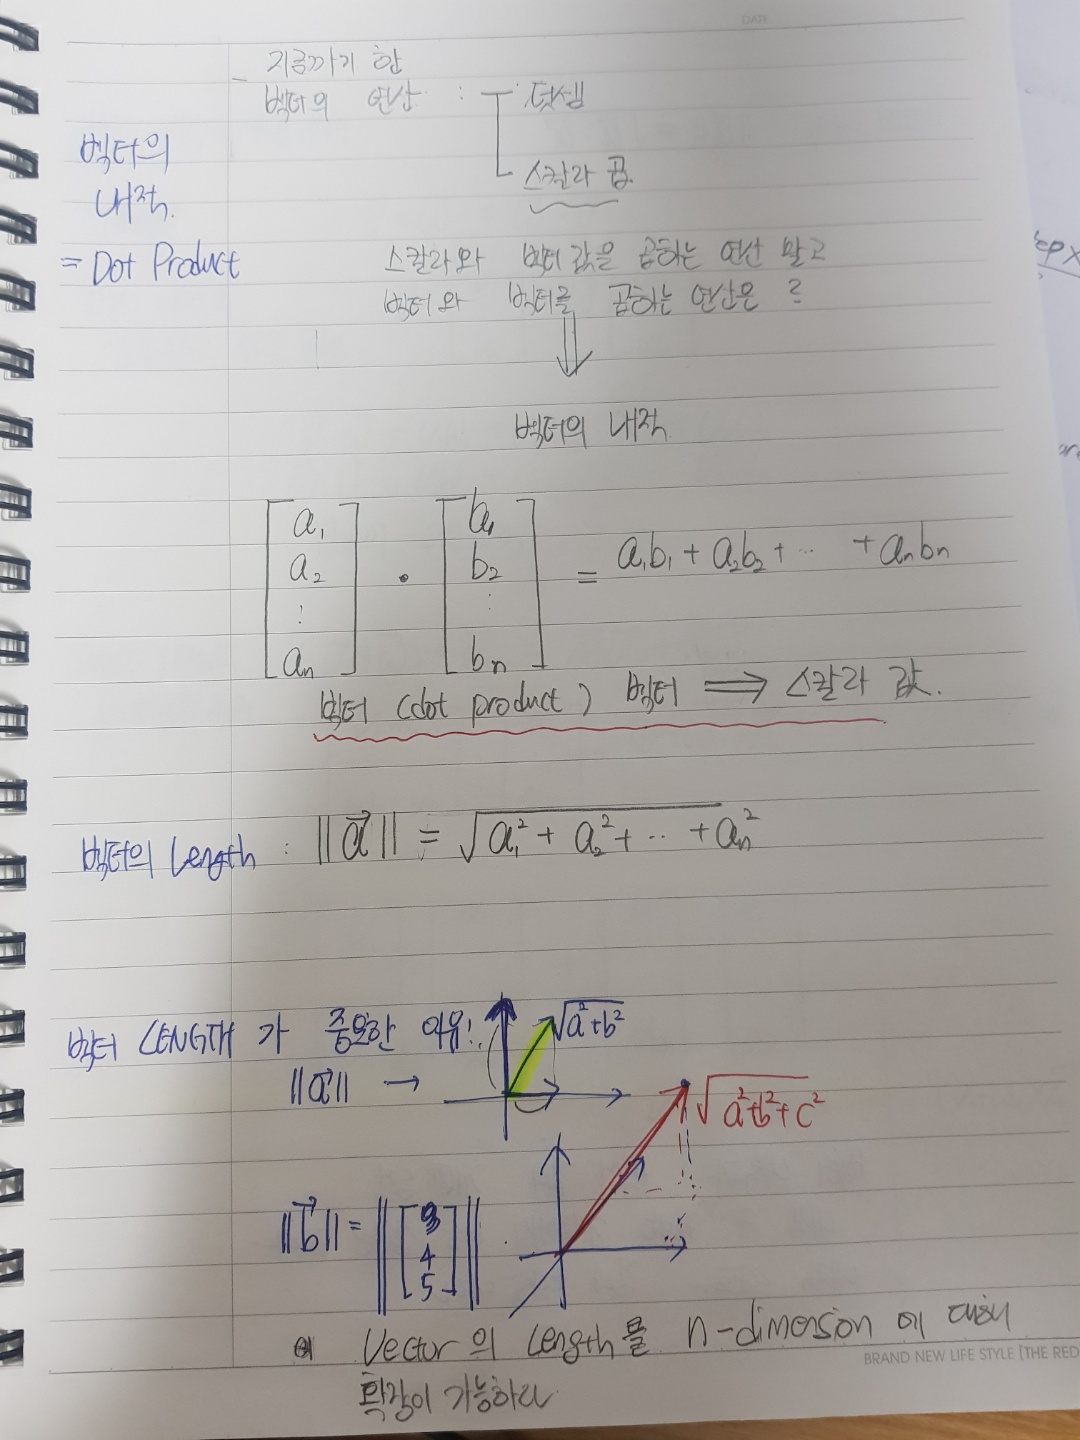 DATE
- 지금까지 한
벡터의 연산 : 덧셈
벡터의
스칼라 곱.
내적.
= Dot Product
스칼라와 벡터 값을 곱하는 연산 말고
벡터와 벡터를 곱하는 연산은 ?
⇓
벡터의 내적
[a₁ a₂ ⋮ aₙ] · [b₁ b₂ ⋮ bₙ] = a₁b₁ + a₂b₂ + ··· + aₙbₙ
벡터 (dot product) 벡터 ⟹ 스칼라 값.
벡터의 Length : ||a⃗|| = √a₁² + a₂² + ··· + aₙ²
벡터 LENGTH 가 중요한 이유!
√a²+b²
||a⃗|| →
√a²+b²+c²
||b⃗|| = ||[3 4 5]||
Vector의 Length를 n-dimension 에 대해
확장이 가능하다
BRAND NEW LIFE STYLE [THE RED